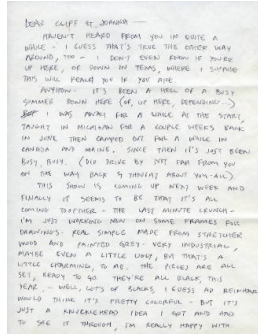 DEAR CLIFF ET JOANNA —
HAVEN'T HEARD FROM YOU IN QUITE A
WHILE - I GUESS THAT'S TRUE THE OTHER WAY
AROUND, TOO - I DON'T EVEN KNOW IF YOU'RE
UP HERE, OR DOWN IN TEXAS, WHERE I SUPPOSE
THIS WILL REACH YOU IF YOU ARE.
ANYHOW - IT'S BEEN A HELL OF A BUSY
SUMMER DOWN HERE (OR, UP HERE, DEPENDING -)
I WAS AWAY FOR A WHILE AT THE START,
TAUGHT IN MICHIGAN FOR A COUPLE WEEKS BACK
IN JUNE THEN CAMPED OUT FOR A WHILE IN
CANADA AND MAINE. SINCE THEN IT'S JUST BEEN
BUSY, BUSY. (DID DRIVE BY NOT FAR FROM YOU
ON THE WAY BACK & THOUGHT ABOUT YOU-ALL).
THIS SHOW IS COMING UP NEXT WEEK AND
FINALLY IT SEEMS TO BE THAT IT'S ALL
COMING TOGETHER - THE LAST MINUTE CRUNCH -
I'M JUST WORKING NOW ON SOME FRAMES FOR
DRAWINGS. REAL SIMPLE MADE FROM STRETCHER
WOOD AND PAINTED GREY - VERY INDUSTRIAL,
MAYBE EVEN A LITTLE UGLY, BUT THAT'S A
LITTLE CHARMING, TO ME. THE PIECES ARE ALL
SET, READY TO GO. THEY'RE ALL BLACK THIS
YEAR - WELL, LOTS OF BLACKS, I GUESS AD REINHAR
WOULD THINK IT'S PRETTY COLORFUL - BUT IT'S
JUST A KNUCKLEHEAD IDEA I GOT AND HAD
TO SEE IT THROUGH, I'M REALLY HAPPY WITH